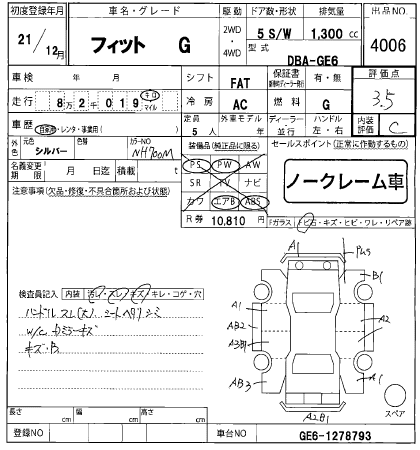 初度登録年月 車名・グレード 駆動 ドア数・形状 排気量 出品NO
21/12月 フィット G 2WD・4WD 5 S/W 1,300 cc 4006
型式 DBA-GE6
車検 年 月 シフト FAT 保証書 有・無 評価点 3.5
走行 8万2千019 キロ マイル 冷房 AC 燃料 G
車歴 自家用・レンタ・事業用( ) 定員 5人 外車モデル 年 ディーラー・並行 ハンドル 左・右 内装評価 C
外色 シルバー 元色 色替 カラーNO NH700M
装備品(純正品に限る) セールスポイント(正常に作動するもの)
名義変更期限 月 日迄 積載 t
PS PW AW
SR TV ナビ
カワ エアB ABS
ノークレーム車
注意事項(欠品・修復・不具合箇所および状態)
R券 10,810 円
Fガラス トビ石・キズ・ヒビ・ワレ・リペア跡
A1
B1
A1
AB2
A2
AB3
A1
A2B1
検査員記入 内装 汚レ・スレ・キズ・キレ・コゲ・穴
ハンドルスレ(大) シートヘタリ シミ
W/C
キズ・B
スペア
長さ cm 幅 cm 高さ cm
登録NO 車台NO GE6-1278793